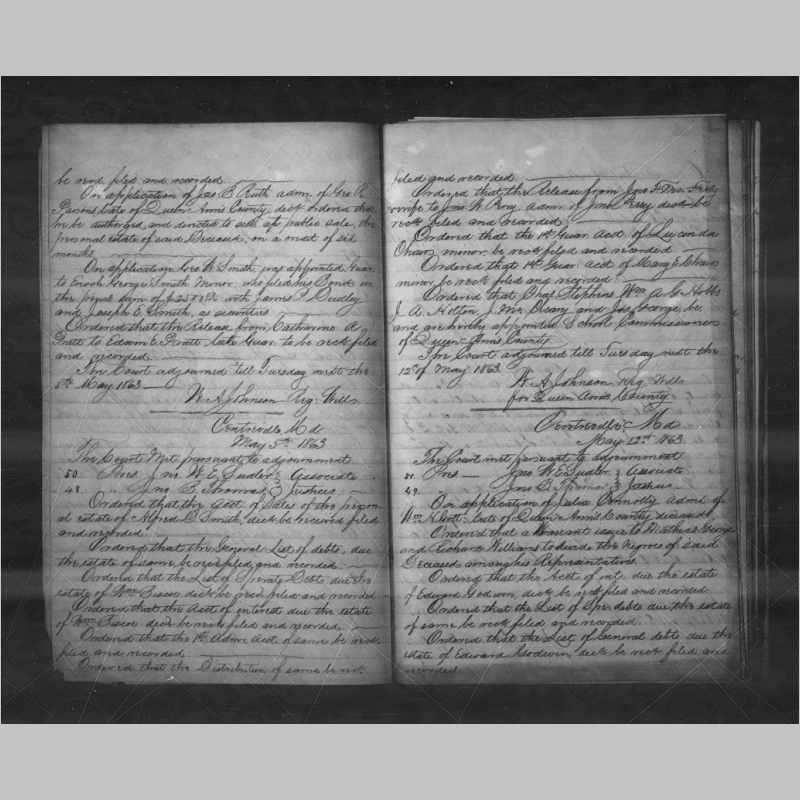 be recd. filed and recorded
On application of Jas. B. Ruth admr. of Geo. R.
Parsons late of Queen Anns County, decd. ordered that
he be authorized and directed to sell at public sale, the
personal estate of said Deceased, on a credit of six
months.
On application Geo. W. Smith, was appointed Guar.
to Enoch George Smith Minor, who filed his Bond in
the penal sum of with James Dudley
and Joseph E. Smith, as securities
Ordered that the Release from Catharine A.
Pratt to Edwin E. Pratt late Guar. to be recd. filed
and recorded.
The Court adjourned 'till Tuesday next the
5th May 1863
W. A. Johnson Reg. Wills
Centreville Md
May 5th 1863
The Court Met pursuant to adjournment
50 Pres Jno. W. E. Sudler } Associate
48 " Jno. B. Thomas } Justices
Ordered that the Acct. of Sales of the person
al estate of Alfred C. Smith, decd. be received filed
and recorded.
Ordered that the General List of debts, due
the estate of same be recd. filed and recorded.
Ordered that the List of Debts due the
estate of Wm decd. be recd. filed and recorded
Ordered that the Acct of interest due the estate
of Wm decd. be recd. filed and recorded.
Ordered that the 1st Admr. acct. of same be recd.
filed and recorded
Ordered that the Distribution of same be rec.
filed and recorded
Ordered that the Release from and
wife to Jno. W. Perry Admr. of Jno. Perry decd. be
recd. filed and recorded
Ordered that the 1st Guar. Acct. of Lucinda
minor, be recd. filed and recorded
Ordered that 1st Guar. acct of Mary E.
minor be recd. filed and recorded
Ordered that Chas. Stephens Wm. A. G. Hobbs
J. A. Holton J. and Jos. George, be
and are hereby appointed School Commissioners
of Queen Anns County
The Court adjourned till Tuesday next the
12th of May 1863
W. A. Johnson Reg. Wills
for Queen Anns County
Centreville Md
May 12th 1863
The Court met pursuant to adjournment
51. Pres Jno. W. E. Sudler } Associate
49. Jno. B. Thomas } Justices
On application of Julia Connolly Admx. of
Wm. late of Queen Anns County deceased
Ordered that a Warrant issue to George
and Richard Williams to divide the Negroes of said
Deceased among his Representatives
Ordered that the Acct. of int. due the estate
of Edward Godwin, decd. be recd. filed and recorded
Ordered that the List of Spr. debts due the estate
of same be recd. filed and recorded.
Ordered that the List of General debts due the
estate of Edward Godwin, decd. be recd. filed and
recorded